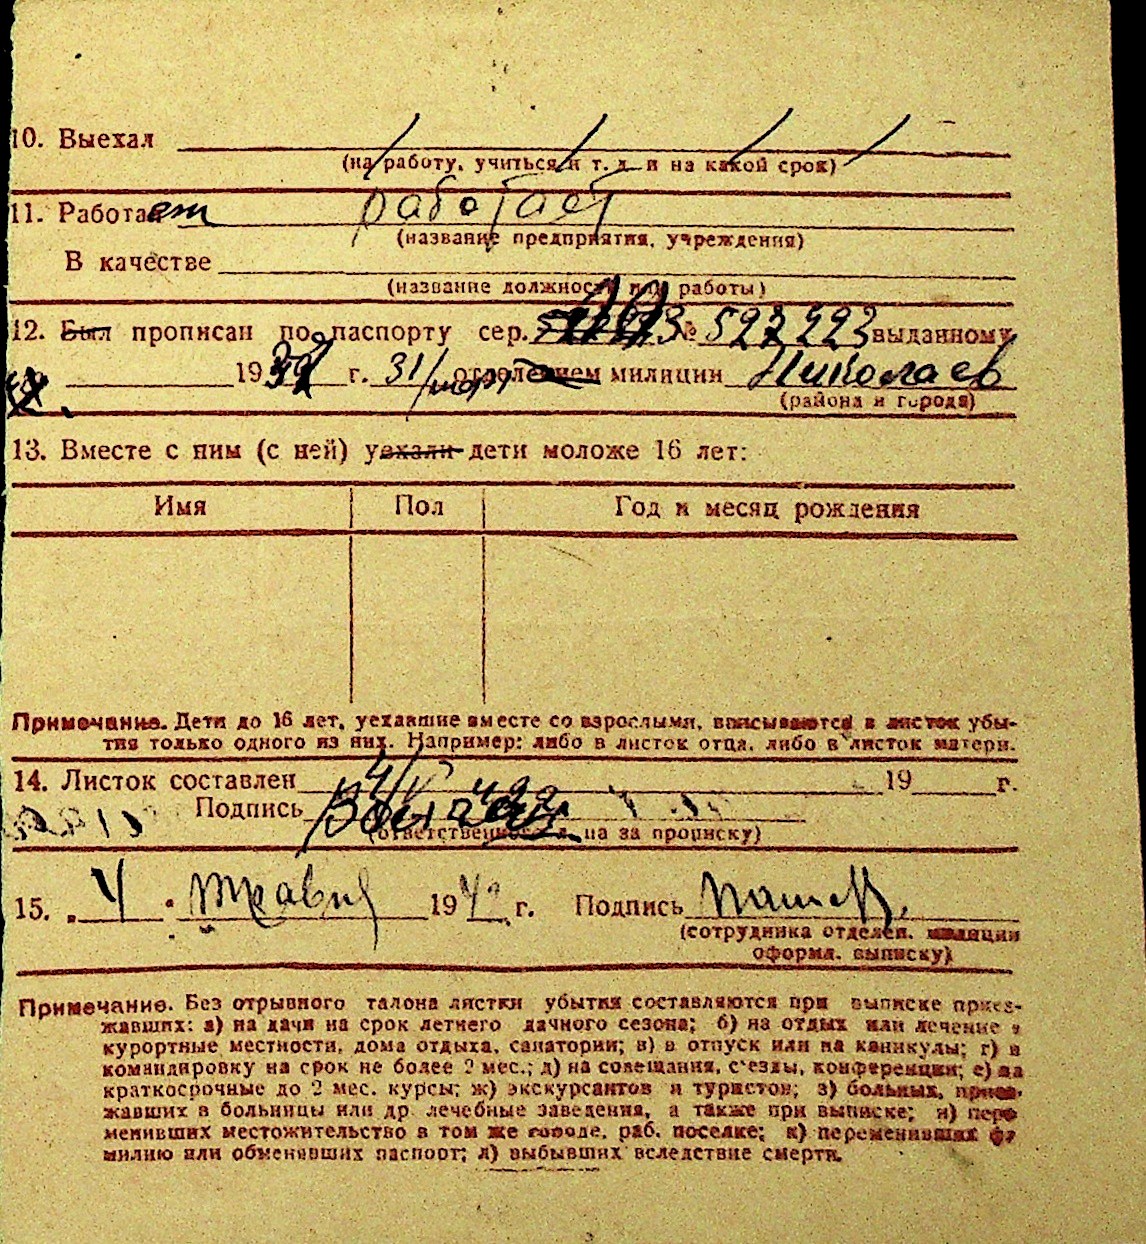 10. Выехал
(на работу, учиться и т. д. и на какой срок)
11. Работает работает
(название предприятия, учреждения)
В качестве
(название должности или работы)
12. Был прописан по паспорту сер. № 527223 выданному
19 г. 31/март отделением милиции Николаев
(района и города)
13. Вместе с ним (с ней) уехали дети моложе 16 лет:
Имя Пол Год и месяц рождения
Примечание. Дети до 16 лет, уехавшие вместе со взрослыми, вписываются в листок убы-
тия только одного из них. Например: либо в листок отца, либо в листок матери.
14. Листок составлен 4/V 19 г.
Подпись
(ответственного лица за прописку)
15. „ 4 " травня 194 г. Подпись
(сотрудника отделен. милиции
оформл. выписку)
Примечание. Без отрывного талона листки убытия составляются при выписке приез-
жавших: а) на дачи на срок летнего дачного сезона; б) на отдых или лечение в
курортные местности, дома отдыха, санатории; в) в отпуск или на каникулы; г) в
командировку на срок не более 2 мес.; д) на совещания, с'езды, конференции; е) на
краткосрочные до 2 мес. курсы; ж) экскурсантов и туристов; з) больных, приез-
жавших в больницы или др лечебные заведения, а также при выписке; и) пере-
менивших местожительство в том же городе, раб. поселке; к) переменивших фа-
милию или обменявших паспорт; л) выбывших вследствие смерти.